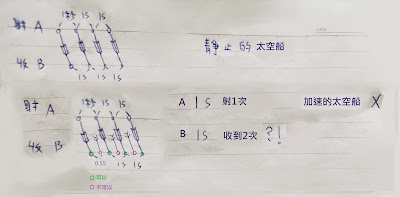 1秒 1S 1S
射 A
靜止的太空船
收 B
1S 1S 1S
1秒 1S 1S
射 A
A 1S 射1次 加速的太空船 X
收 B
B 1S 收到2次 ?!
0.5S 1S 1S
可以
不可以